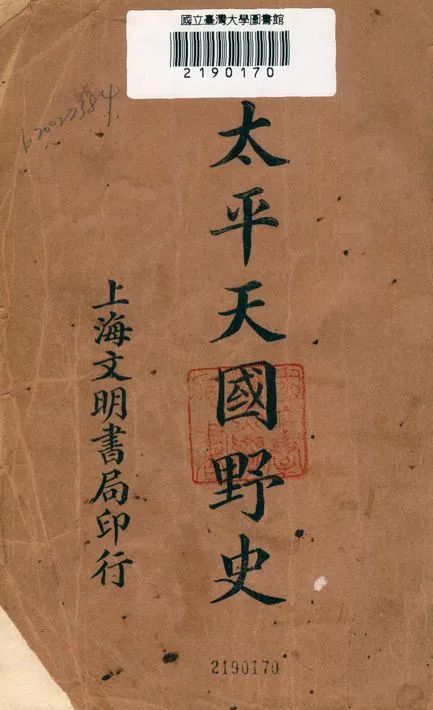 國立臺灣大學圖書館
2190170
62022384
太平天國野史
上海文明書局印行
2190170